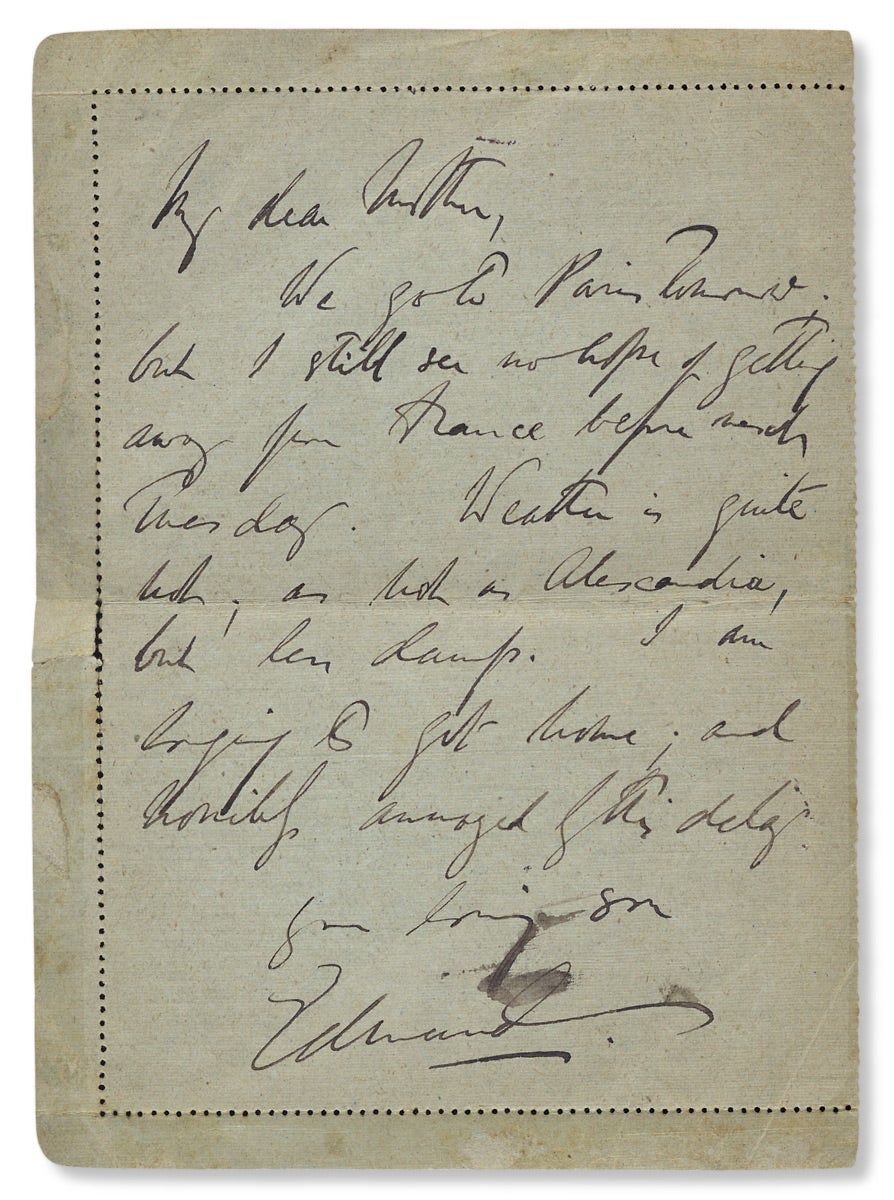 My dear Mother,
We go to Paris tomorrow.
but I still see no hope of getting
away from France before next
Tuesday. Weather is quite
hot; as hot as Alexandria,
but less damp. I am
longing to get home; and
horribly annoyed by this delay.
your loving son
Edmund.